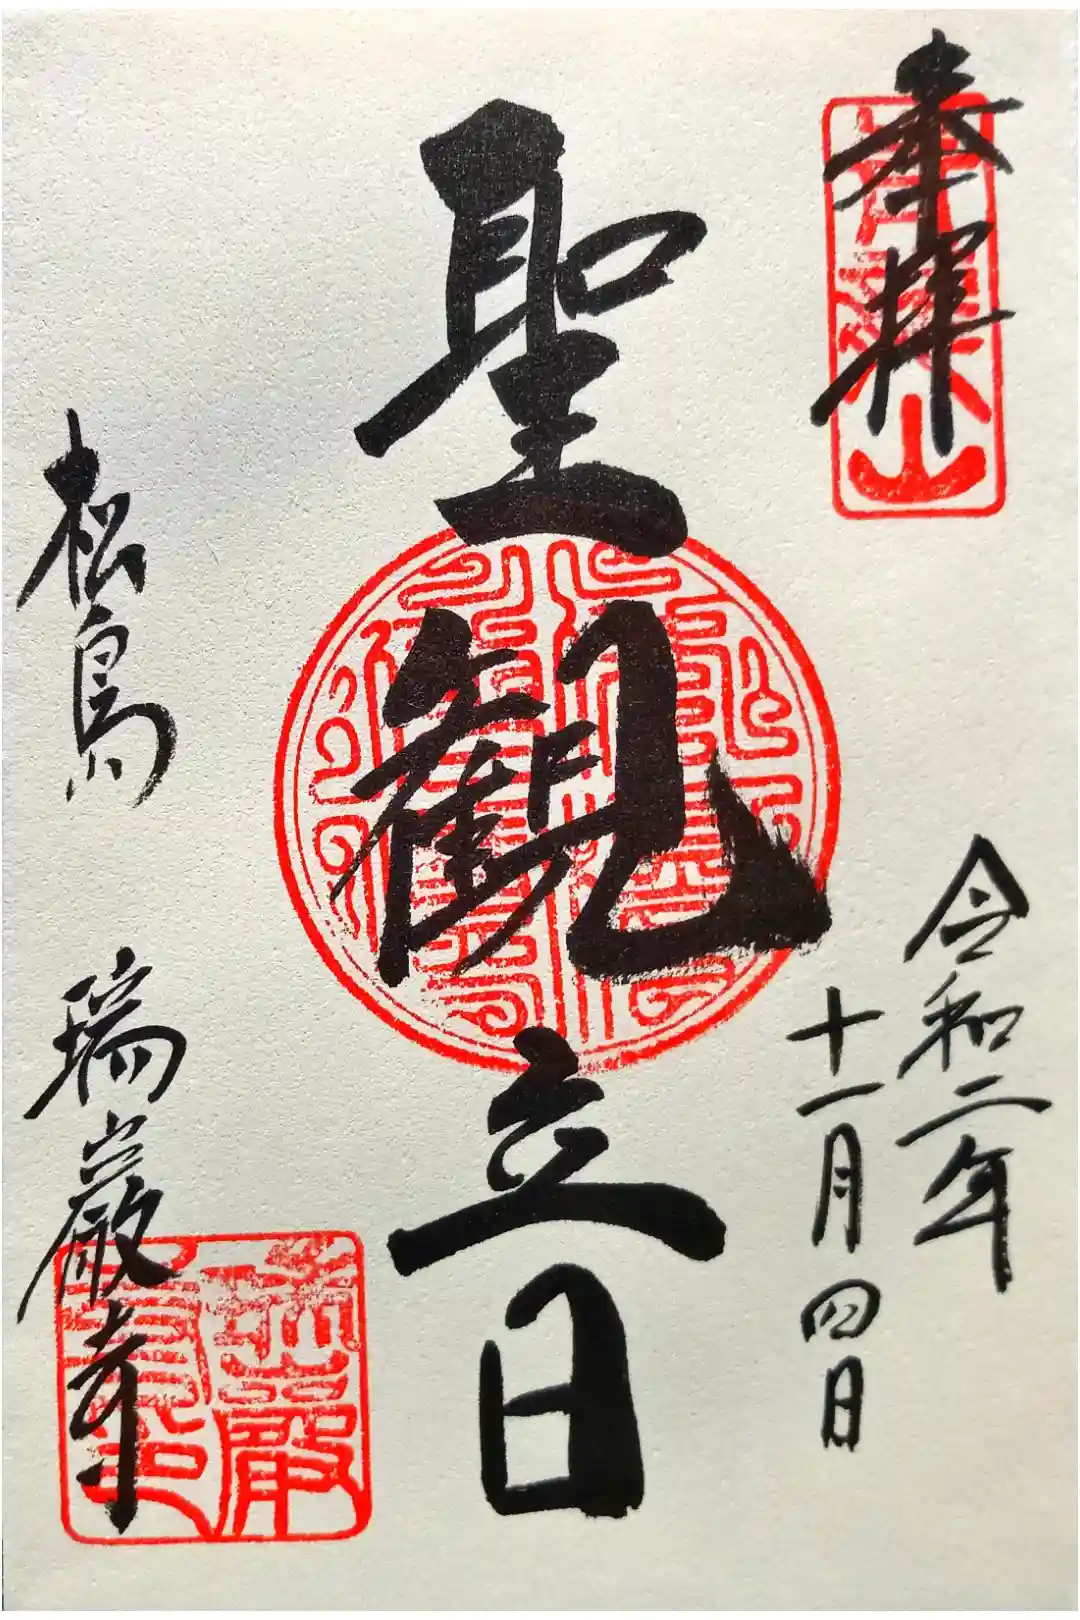 奉拝
青龍山
令和二年
十一月四日
聖観音
松島
瑞巌寺